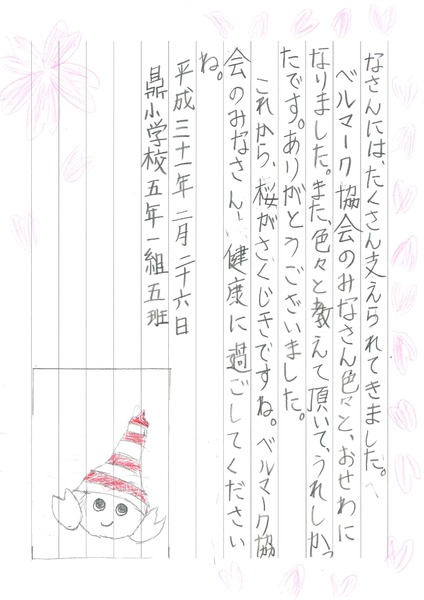 なさんには、たくさん支えられてきました。
ベルマーク協会のみなさん色々と、おせわに
なりました。また、色々と教えて頂いて、うれしかっ
たです。ありがとうございました。
これから、桜がさくじきですね。ベルマーク協
会のみなさん、健康に過ごしてください
ね。
平成三十一年二月二十六日
鼎小学校五年一組五班